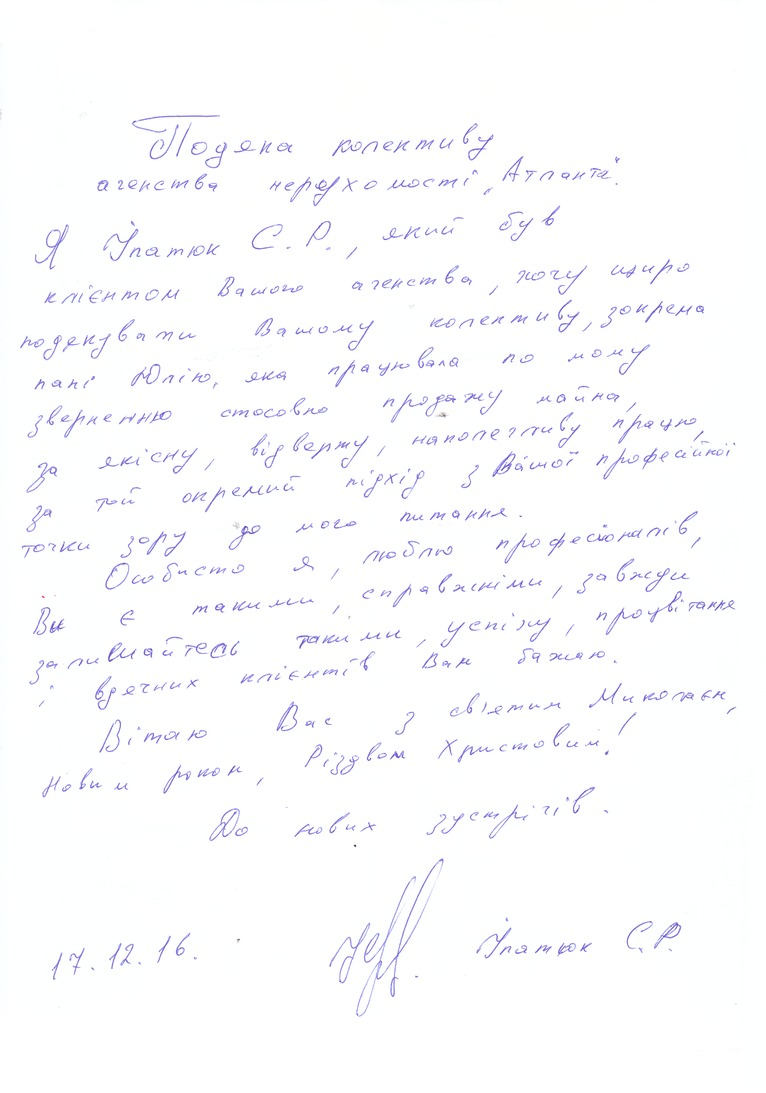 Подяка колективу
агенства нерухомості „Атланта".
Я Іпатюк С. Р., який був
клієнтом Вашого агенства, хочу щиро
подякувати Вашому колективу, зокрема
пані Юлію, яка працювала по мому
зверненню стосовно продажу майна,
за якісну, відверту, наполегливу працю,
за той окремий підхід з Вашої професійної
точки зору до мого питання.
Особисто я, люблю професіоналів,
Ви є такими, справжніми, завжди
залишайтесь такими, успіху, процвітання
і вдячних клієнтів Вам бажаю.
Вітаю Вас з св'ятим Миколаєм,
Новим роком, Різдвом Христовим!
До нових зустрічів.
17.12.16. Іпатюк С.Р.